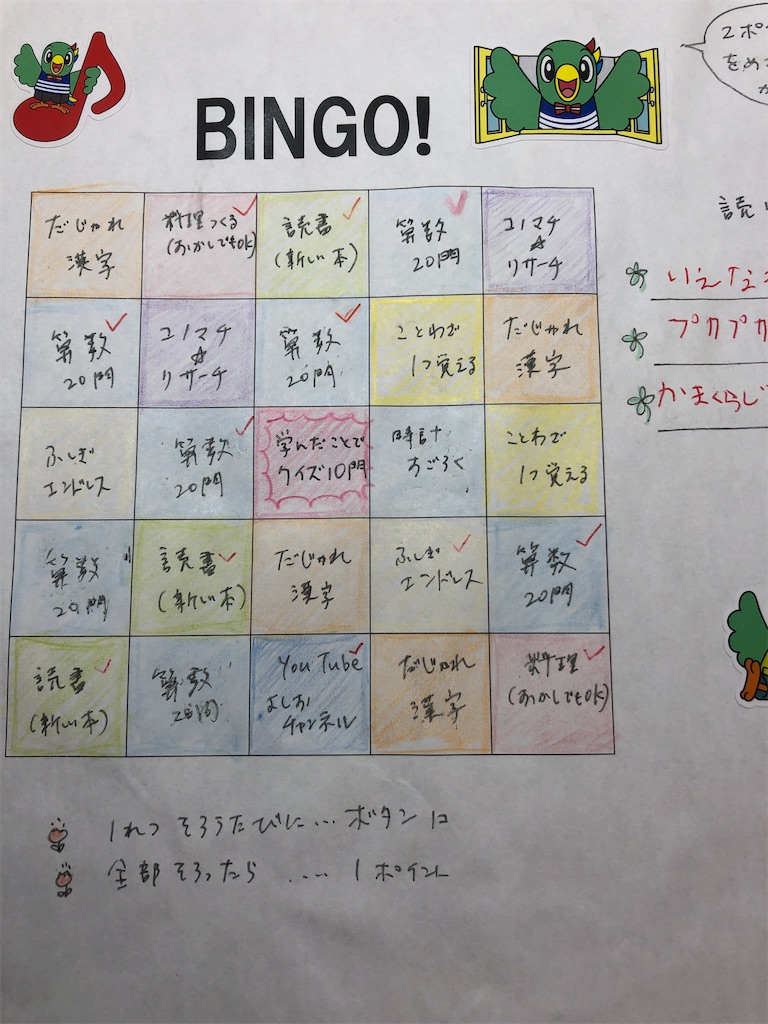 BINGO!
2ポイ
をめ
か
だじゃれ
漢字
料理つくる
(おかしでもOK)
読書
(新しい本)
算数
20問
コノマチ
☆
リサーチ
算数
20問
コノマチ
☆
リサーチ
算数
20問
ことわざ
1つ覚える
だじゃれ
漢字
ふしぎ
エンドレス
算数
20問
学んだことで
クイズ10問
時計
すごろく
ことわざ
1つ覚える
算数
20問
読書
(新しい本)
だじゃれ
漢字
ふしぎ
エンドレス
算数
20問
読書
(新しい本)
算数
20問
YouTube
よしお
チャンネル
だじゃれ
漢字
料理
(おかしでもOK)
読
いえなき
プカプカ
かまくらじ
1れつ そろうたびに…ボタン1コ
全部そろったら …. 1ポイント